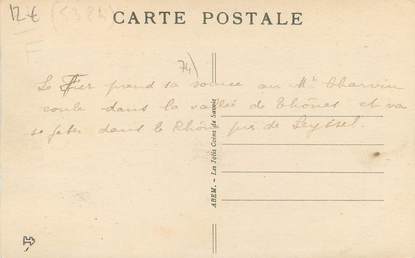 12€ (5384)
F
CARTE POSTALE
74)
Le Fier prend sa source au Mt Charvin
coule dans la vallée de Thônes et va
se jeter dans le Rhône près de Seyssel.
ABEM. - Les Jolis Coins de Savoie